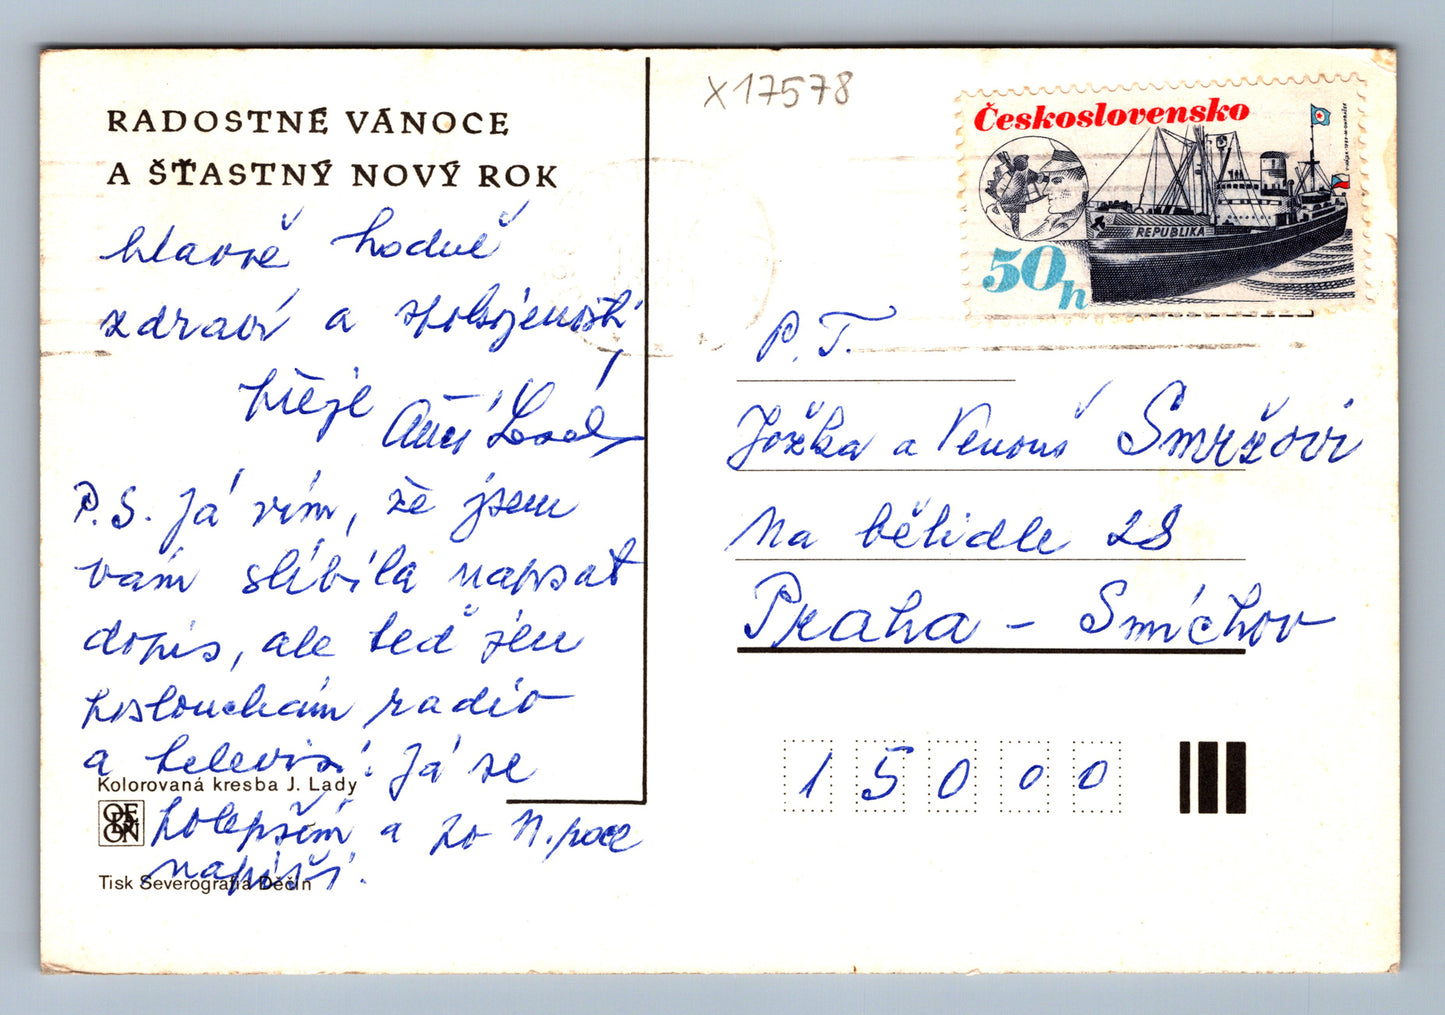 RADOSTNÉ VÁNOCE
A ŠŤASTNÝ NOVÝ ROK
hlavně hodně
zdraví a spokojenosti
přeje
P.S. Já vím, že jsem
vám slíbila napsat
dopis, ale teď jen
poslouchám radio
a televisi. Já se
polepším a po N. roce
napíši.
Kolorovaná kresba J. Lady
ODEON
Tisk Severografia Děčín
X17578
Československo
REPUBLIKA
50h
P. T.
Jožka a Venouš Smržovi
Na bělidle 28
Praha - Smíchov
15000